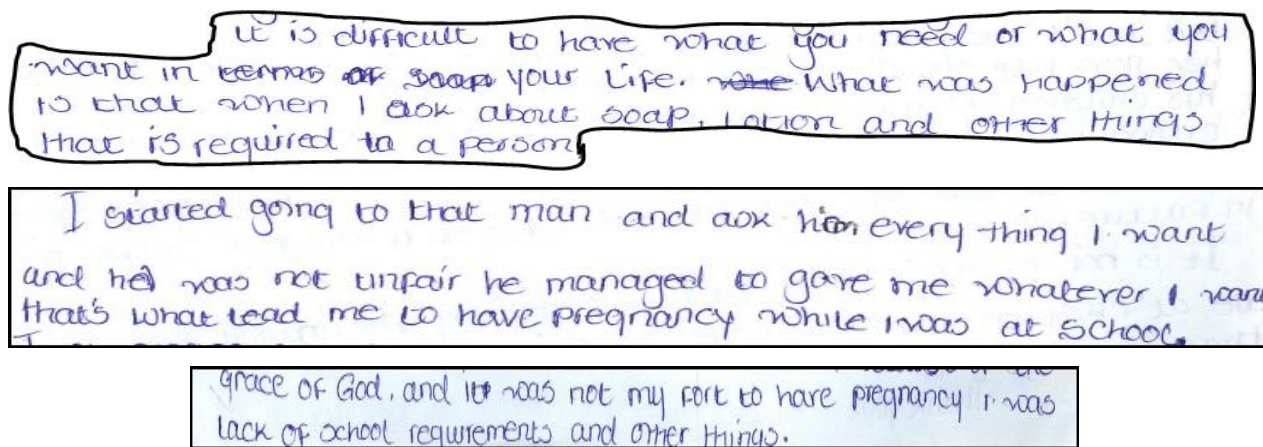 it is difficult to have what you need or what you
want in terms of soap your life. What was happened
is that when I ask about soap, lotion and other things
that is required to a person
I started going to that man and ask him every thing I want
and he was not unfair he managed to gave me whatever I want
that's what lead me to have pregnancy while I was at school.
grace of God, and it was not my fort to have pregnancy I was
lack of school requirements and other things.